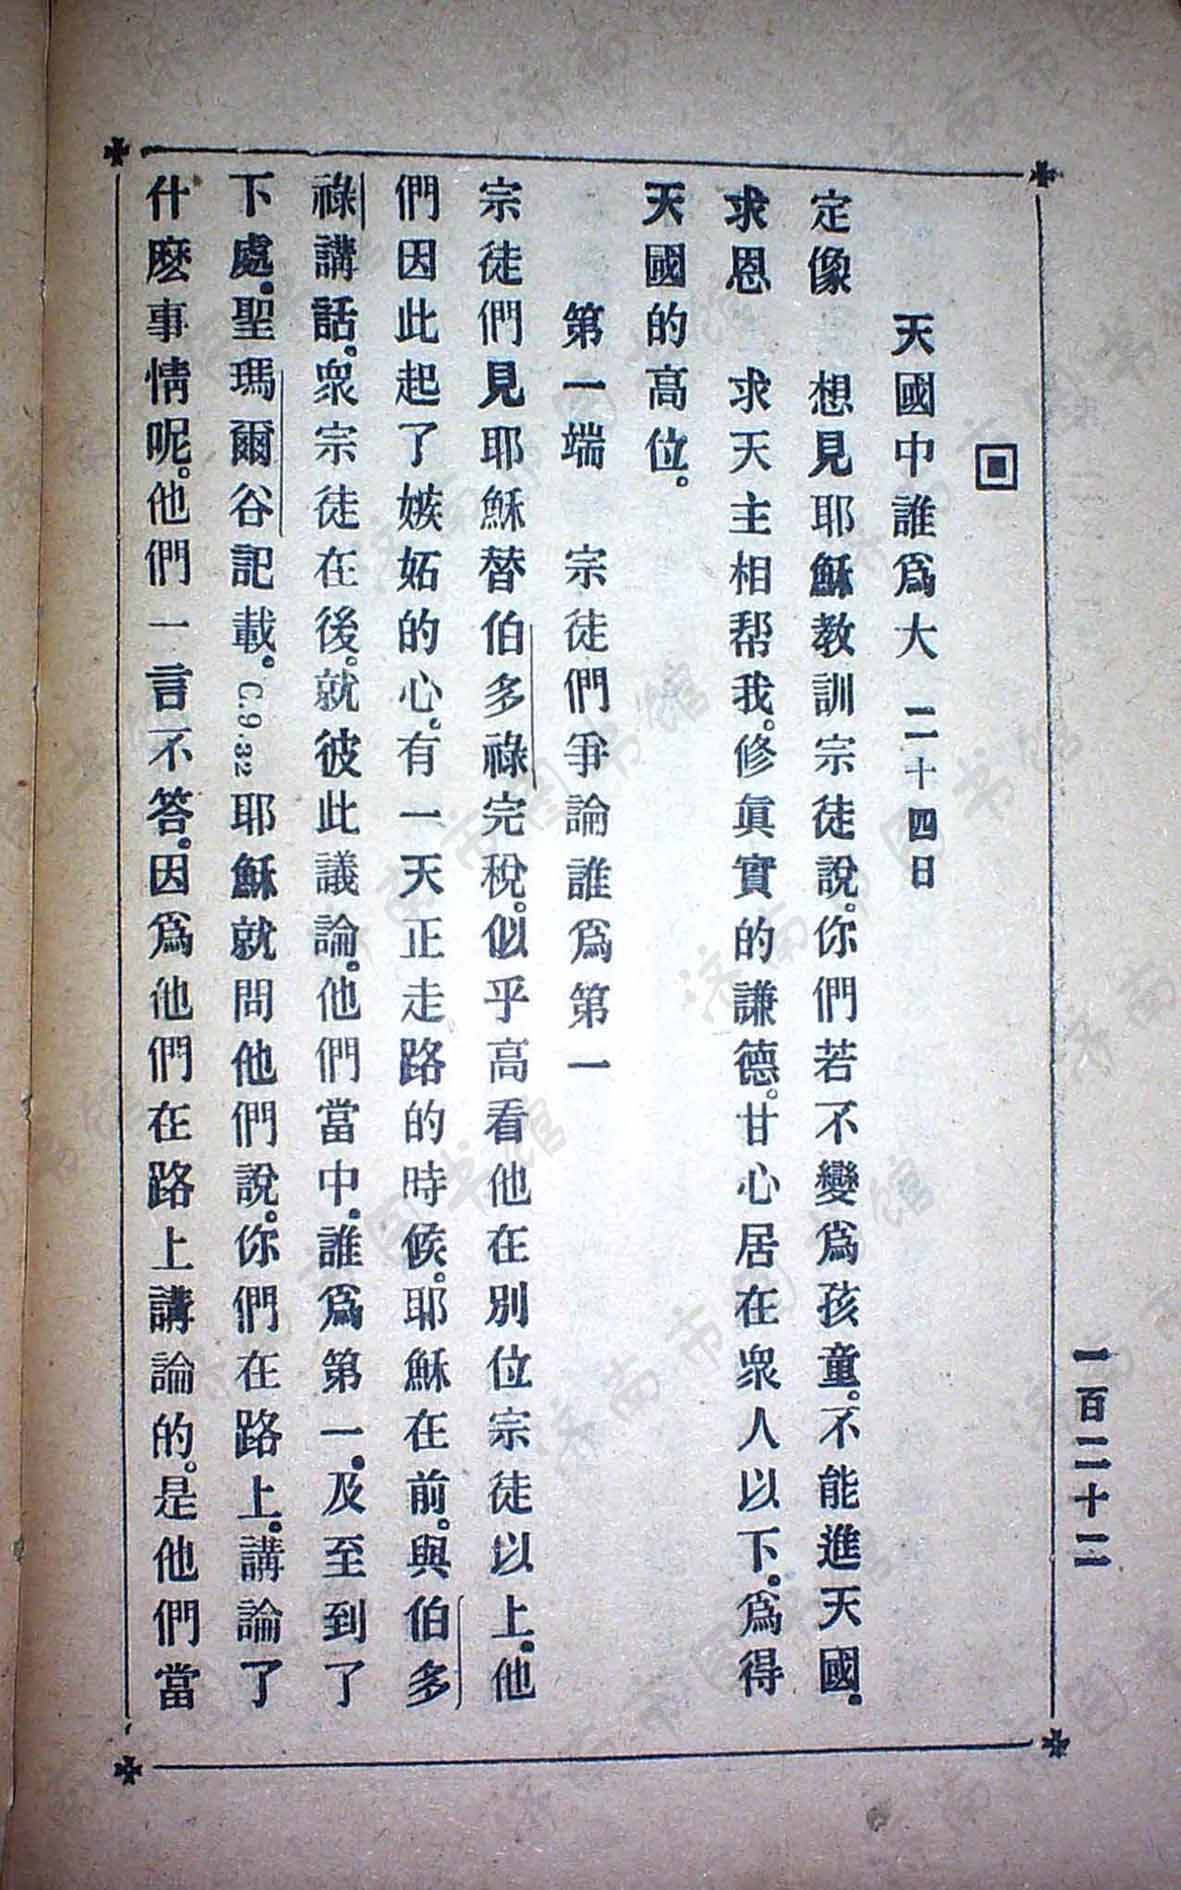 一百二十二
天國中誰爲大 二十四日
定像 想見耶穌教訓宗徒說。你們若不變爲孩童。不能進天國。
求恩 求天主相帮我。修眞實的謙德。甘心居在衆人以下。爲得
天國的高位。
第一端 宗徒們爭論誰爲第一
宗徒們見耶穌替伯多祿完稅。似乎高看他在別位宗徒以上。他
們因此起了嫉妬的心。有一天正走路的時候。耶穌在前。與伯多
祿講話。衆宗徒在後。就彼此議論。他們當中。誰爲第一。及至到了
下處。聖瑪爾谷記載。C.9.32耶穌就問他們說。你們在路上。講論了
什麽事情呢。他們一言不答。因爲他們在路上講論的。是他們當
济南市图书馆